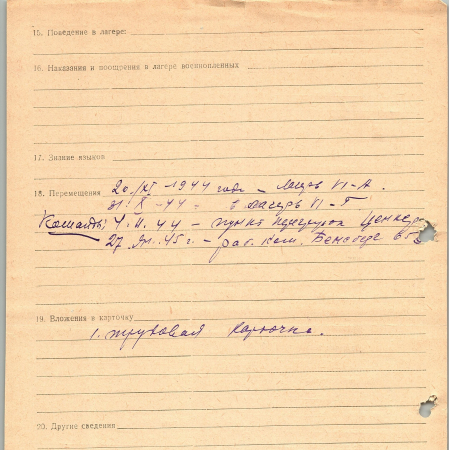 15. Поведение в лагере:
16. Наказания и поощрения в лагере военнопленных
17. Знание языков
18. Перемещения 20/XI-1944 года – лагерь VI-А.
31/X-44 – в лагерь VI-Г
Команды: 4.11.44 – пункт
27. 45 г. – раб. ком.
19. Вложения в карточку
1. трудовая карточка.
20. Другие сведения